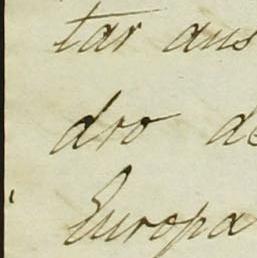 tar aus
dro de
Europa